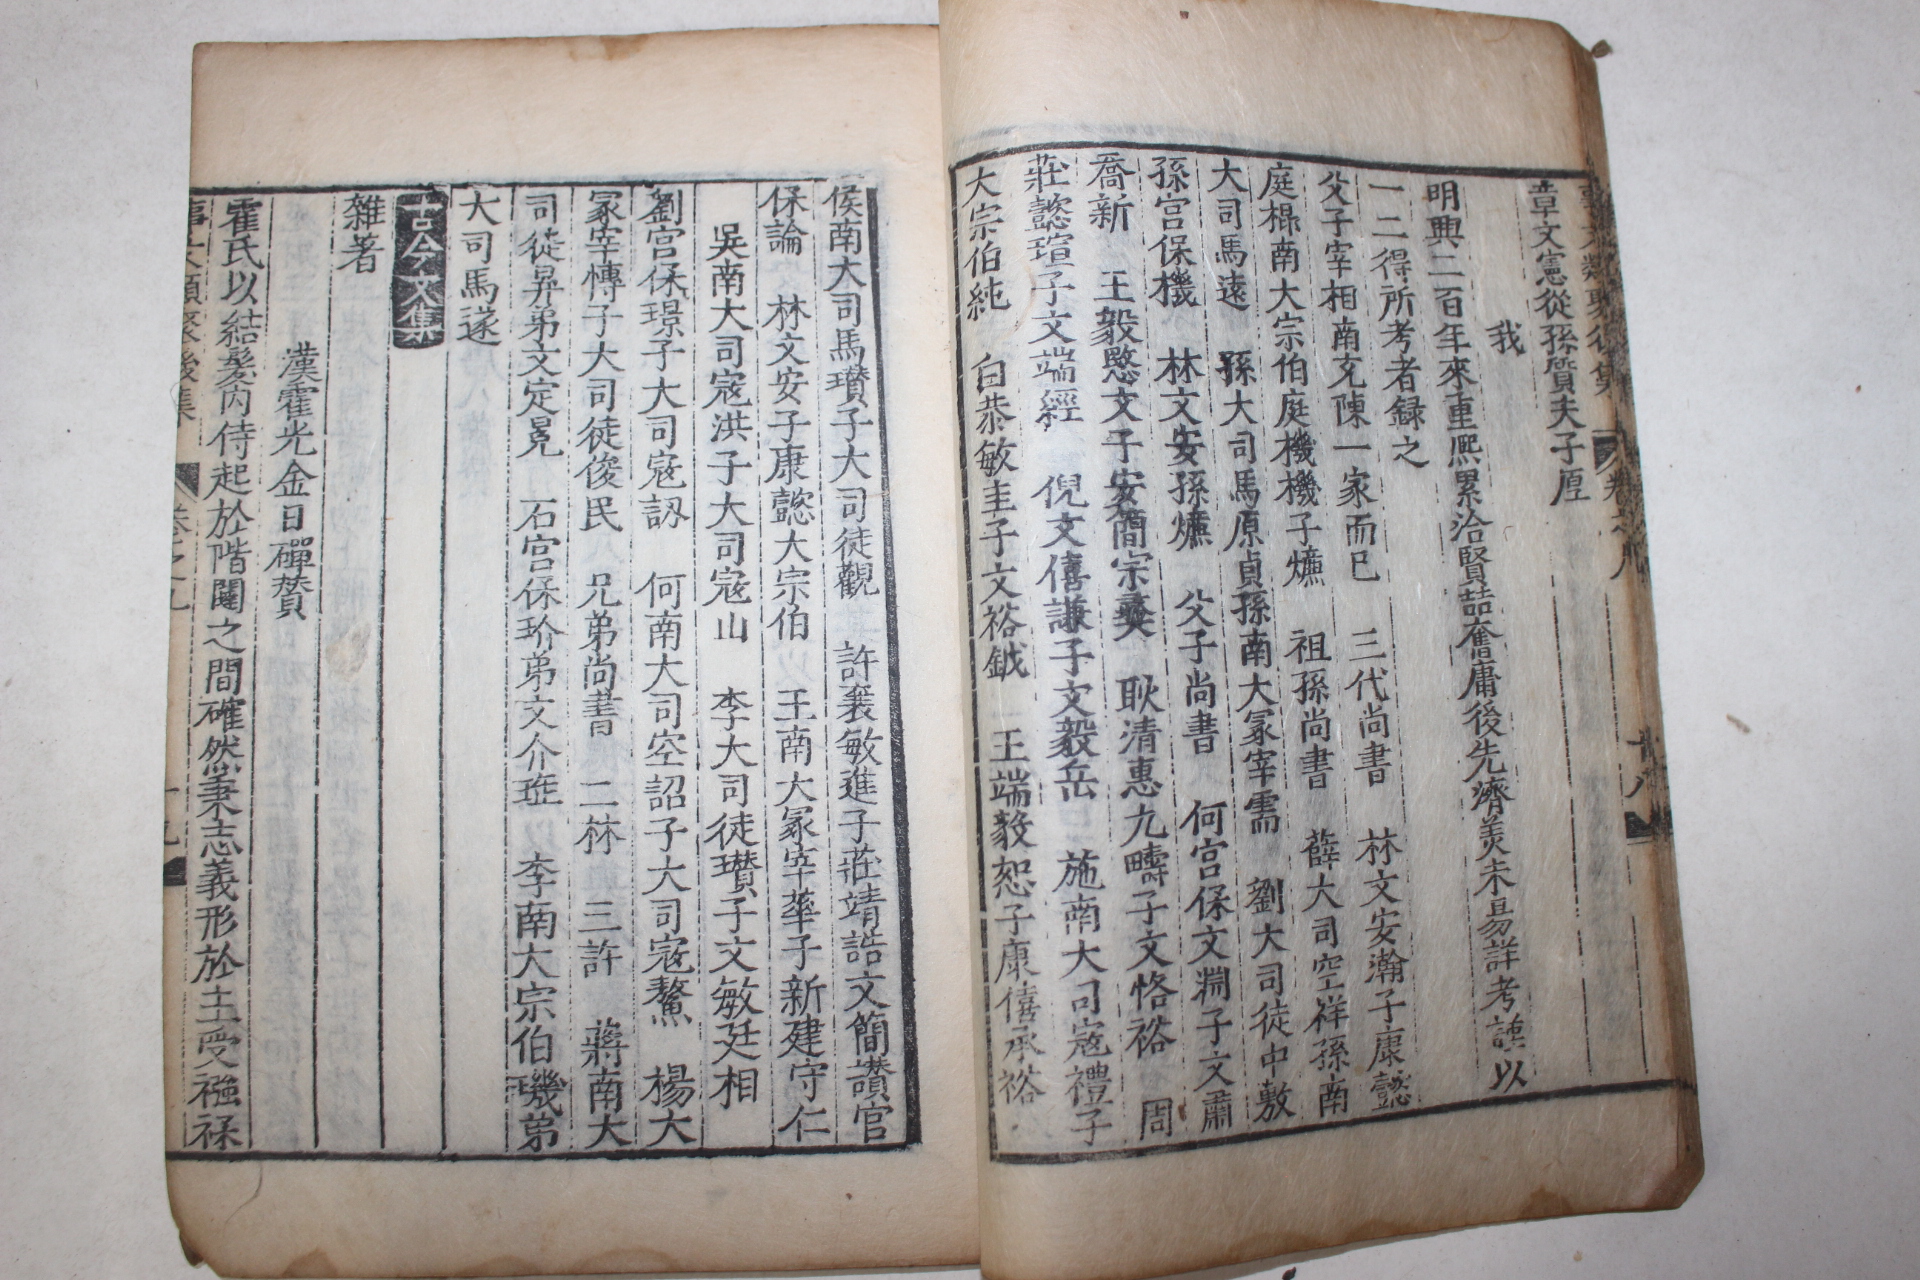 章文憲從孫質夫子厚
我
明興二百年來重熈累洽賢喆奮庸後先濟美未易詳考謹以
一二得所考者録之
父子宰相南充陳一家而已　三代尚書　林文安瀚子康懿
庭㭿南大宗伯庭機機子爌　祖孫尚書　薛大司空祥孫南
大司馬遠　孫大司馬原貞孫南大冢宰需　劉大司徒中敷
孫宮保機　林文安孫爌　父子尚書　何宮保文淵子文肅
喬新　王毅愍文子安簡宗彝　耿清惠九疇子文恪裕　周
莊懿瑄子文端經　倪文僖謙子文毅岳　施南大司寇禮子
大宗伯純　白恭敏圭子文裕鉞　王端毅恕子康僖承裕
侯南大司馬瓚子大司徒觀　許襄敏進子莊靖誥文簡讃官
保論　林文安子康懿大宗伯　王南大冢宰華子新建守仁
吳南大司寇洪子大司寇山　李大司徒瓚子文敏廷相
劉宮保璟子大司寇訒　何南大司空詔子大司寇鰲　楊大
冢宰慱子大司徒俊民　兄弟尚書　二林　三許　蔣南大
司徒昇弟文定冕　石宮保玠弟文介珤　李南大宗伯璣弟
大司馬遂
古今文集
雜著
漢霍光金日磾賛
霍氏以結髮内侍起於階闥之間確然秉志義形於主受襁褓